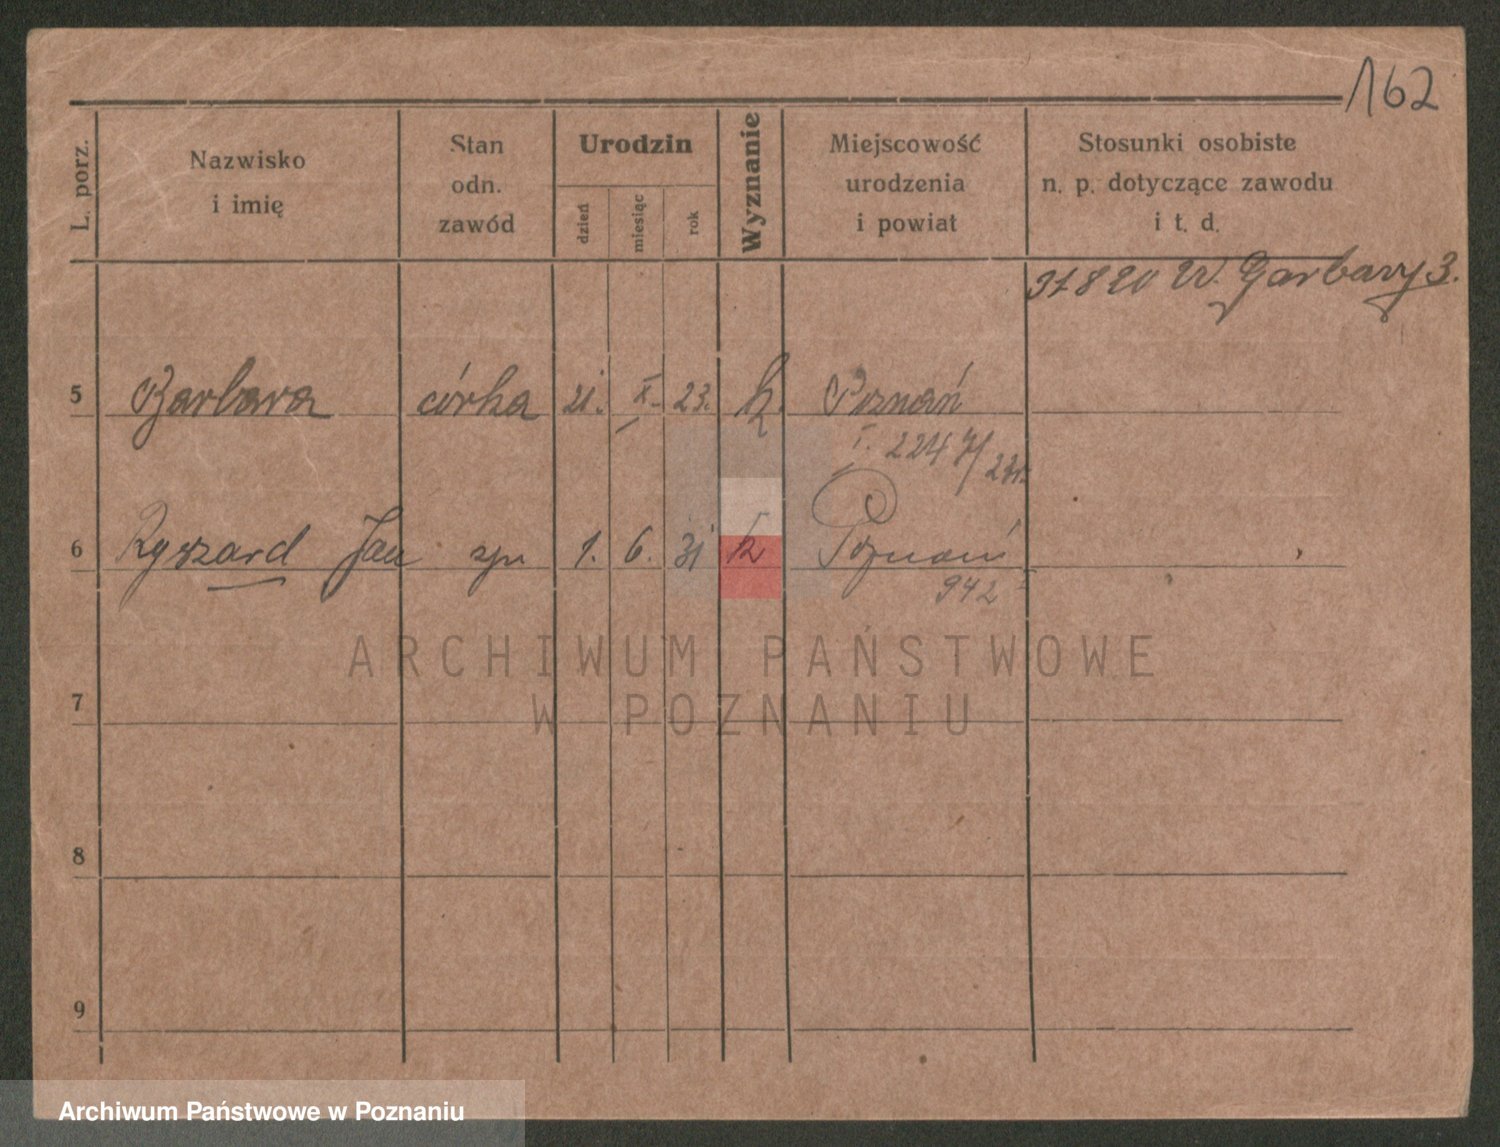 162
L. porz.
Nazwisko
i imię
Stan
odn.
zawód
Urodzin
dzień
miesiąc
rok
Wyznanie
Miejscowość
urodzenia
i powiat
Stosunki osobiste
n. p. dotyczące zawodu
i t. d.
31 8 20 W. Garbary 3.
5 Barbara córka 21. X. 23. k. Poznań
I. 2247/23r.
6 Ryszard Jan syn 1. 6. 31 k Poznań
942 I
7
8
9
ARCHIWUM PAŃSTWOWE
W POZNANIU
Archiwum Państwowe w Poznaniu